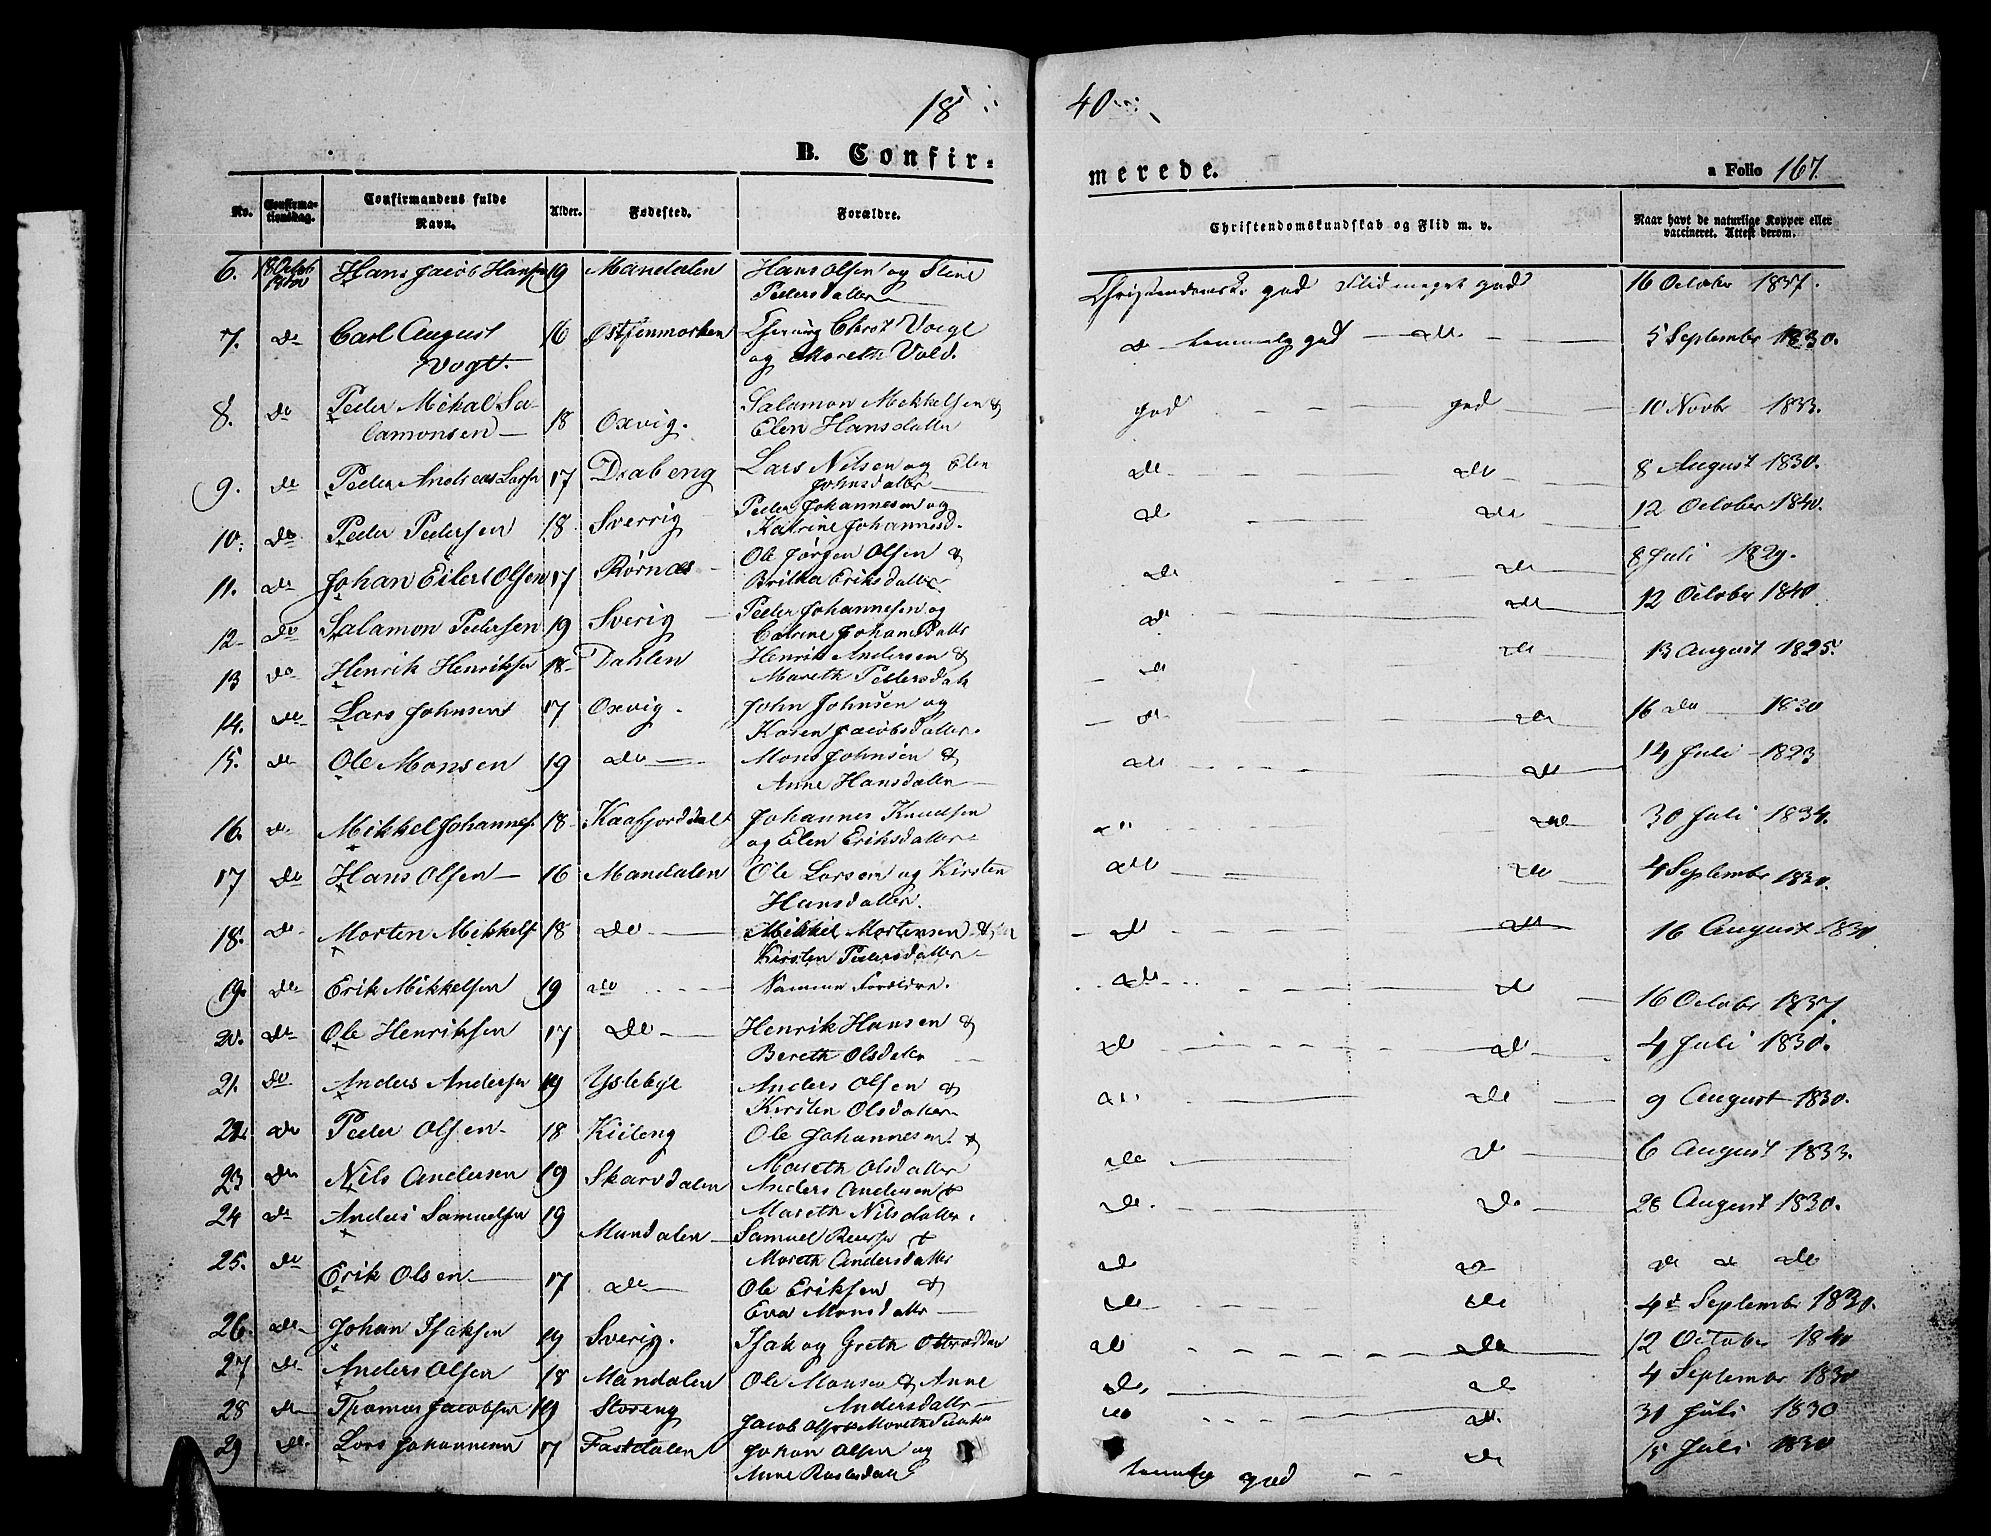 1840
B. Confirmerede.
a Folio 167.
No. Confirmationsdag. Confirmandens fulde Navn. Alder. Fødested. Forældre. Christendomskundskab og Flid m. v. Naar havt de naturlige Kopper eller vaccineret. Attest derom.
6. 18 Octob 1840 Hans Jacob Hansen 19 Mandalen Hans Olsen og Stine Pedersdatter Christendomsk. god Flid meget god 16 October 1837.
7. do Carl August Vogt. 16 Christ Voigt og Mareth Vold. do temmelig god do 5 Septembr 1830.
8. do Peder Mikal Salamonsen 18 Oxvig. Salamon Mikkelsen & Elen Hansdatter god god 10 Novbr 1833.
9. do Peder Andreas Larsen 17 Draбeng Lars Nilsen og Elen Johnsdattr do do 8 August 1830.
10. do Peder Pedersen 18 Sverrig Peder Johannesen og Katrine Johannesd. do do 12 October 1840.
11. do Johan Eilert Olsen 17 Rørnæs Ole Jørgen Olsen & Britha Eriksdatter do do 8 Juli 1829.
12 do Salamon Pedersen 19 Sverig Peder Johannesen og Catrine Johansdattr do do 12 October 1840.
13 do Henrik Henriksen 18 Dahlen Henrik Andersen & Mareth Pedersdatr do do 13 August 1825.
14. do Lars Johnsen 17 Oxvig. John Johnsen og Karen Jacobsdatter. do do 16 do 1830
15. do Ole Monsen 19 do Mons Johnsen & Anne Hansdatter do do 14 Juli 1823
16. do Mikkel Johannes. 18 Kaafjorddal Johannes Knudsen og Elen Eriksdatter do do 30 Juli 1834.
17 do Hans Olsen 16 Mandalen Ole Larsen og Kirsten Hansdatter. do do 4 Septembr 1830.
18. do Morten Mikkels 18 do Mikkel Mortensen & Kirsten Pedersdatter do do 16 August 1830
19. do Erik Mikkelsen 19 do Samme Forældre. do do 16 Octobr 1837.
20. do Ole Henriksen 17 do Henrik Hansen & Bereth Olsdatr do do 4 Juli 1830.
21. do Anders Andersen 19 Yslebye Anders Olsen & Kirsten Olsdatter do do 9 August 1830.
22. do Peder Olsen 18 Kiileng Ole Johannesen & Mareth Olsdatter do do 6 August 1833.
23 do Nils Andersen 19 Skarvdalen Anders Andersen & Mareth Nilsdatter. do do 28 August 1830.
24 do Anders Samuelsen 19 Mandalen Samuel & Mareth Andersdattr do do do do
25. do Erik Olsen 17 do Ole Eriksen & Eva Monsdattr do do 4de Septembr 1830.
26. do Johan Isaksen 19 Sverig. Isak og Greth do do 12 October 1840
27 do Anders Olsen 18 Mandalen Ole Monsen & Anne Andersdattr do do 4 Septembr 1830
28 do Thomas Jacobsen 19 Storeng Jacob Olsen & Mareth do do 31 Juli 1830
29 do Lars Johannesen 17 Fastdalen Johan Olsen og Anne temmelig god do 15 Juli 1830